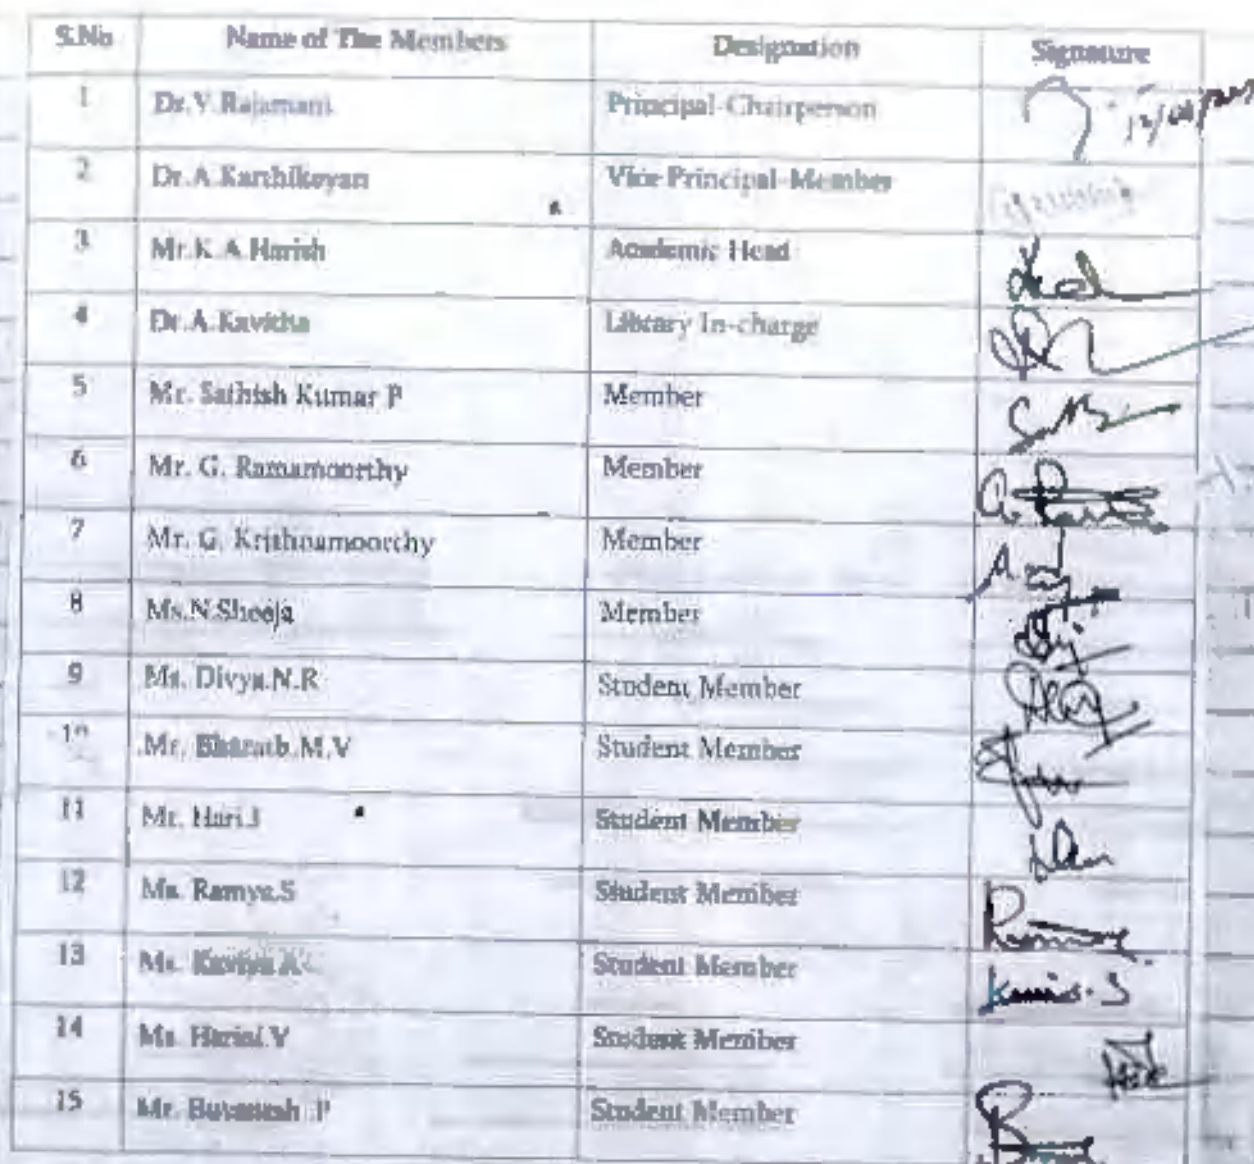 S.No Name of The Members Designation Signature
1 Dr.V.Rajamani Principal-Chairperson
2 Dr.A.Karthikeyan Vice Principal-Member
3 Mr.K.A.Harish Academic Head
4 Dr.A.Kavitha Library In-charge
5 Mr. Sathish Kumar P Member
6 Mr. G. Ramamoorthy Member
7 Mr. G. Krithnamoorthy Member
8 Ms.N.Sheeja Member
9 Ms. Divya.N.R Student Member
10 Mr. Bharath.M.V Student Member
11 Mr. Hari.J Student Member
12 Ms. Ramya.S Student Member
13 Ms. Student Member
14 Ms. Harini.V Student Member
15 Mr. P Student Member